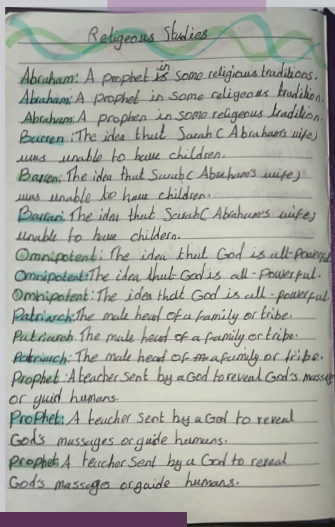 Religeous Studies
Abraham: A prophet in some religious traditions.
Abraham: A prophet in some religeous tradition.
Abraham: A prophen in some religeous tradition.
Barren: The idea that Sarah (Abraham's wife)
was unable to have children.
Barren: The idea that Sarah (Abraham's wife)
was unable to have children.
Barran: The idea that Sarah (Abraham's wife)
unable to have childern.
Omnipotent: The idea that God is all-powerful
Omnipotent: The idea that God is all-Powerful.
Omnipotent: The idea that God is all-powerful
Patriarch: The male head of a family or tribe.
Patriarch. The male head of a family or tribe.
Patriarch: The male head of a family or tribe.
Prophet: A teacher sent by a God to reveal God's messages
or guid humans.
Prophet: A teacher sent by a God to reveal
God's mussages or guide humans.
Prophet: A teacher sent by a God to reveal
God's massages or guide humans.